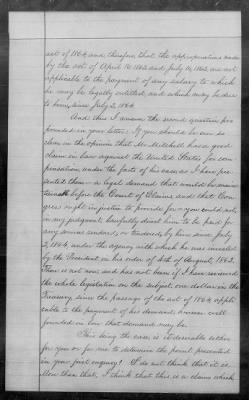 act of 1864 and therefore that the appropriations made
by the act of April 16 1862 and July 16, 1862 are not
applicable to the payment of any salary to which
he may be legally entitled, and which may be due
to him, since July 2, 1864.
And thus I answer the second question pro
pounded in your letter. If you should be ever so
clear in the opinion that Mr Mitchell has a good
claim in law against the United States for com
pensation, under the facts of his case, as I have pre
sented them — a legal demand that would be
before the Court of Claims, and that Con
gress might in justice to provide for — you could not,
in my judgment, lawfully direct him to be paid for
any service rendered, or tendered, by him since July
2, 1864, under the agency with which he was invested
by the President in his order of 4th of August 1862.
There is not now and has not been if I have reviewed
the whole legislation on the subject one dollar in the
Treasury since the passage of the act of 1864 appli
cable to the payment of his demand, however well
founded in law that demand may be.
This being the case is it desirable either
for you or for me to determine the point presented
in your first inquiry? I do not think that it is.
More than that, I think that this is a claim which